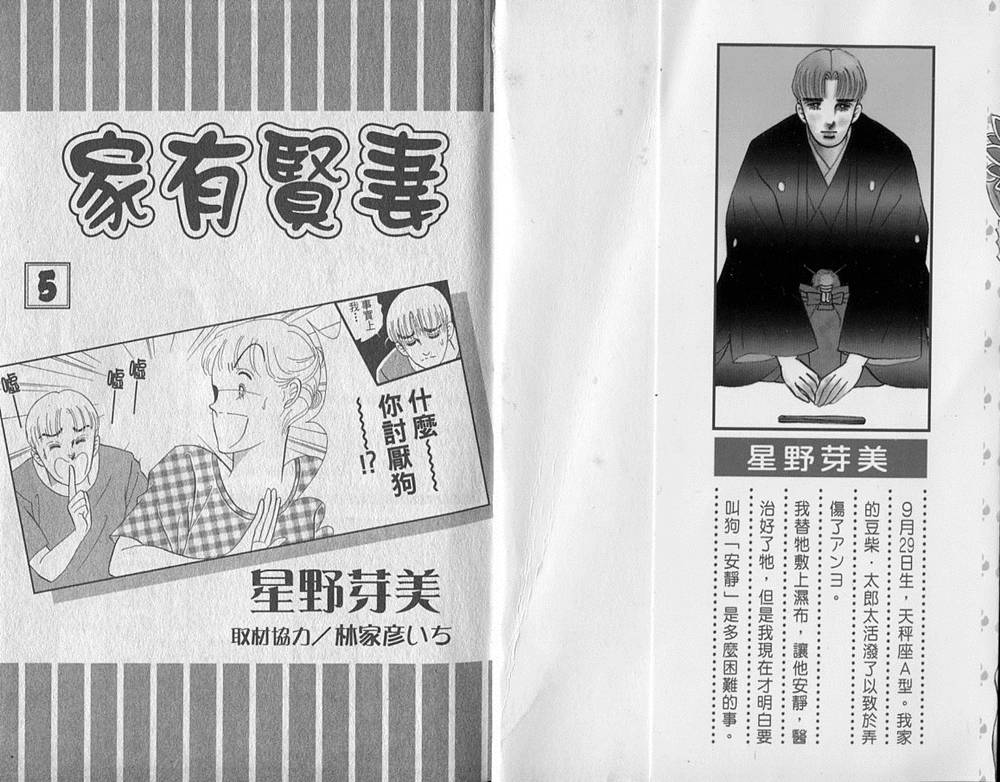 家有賢妻
5
事實上
我…
什麼
你討厭狗
!?
噓
噓
噓
星野芽美
取材協力／林家彦いち
星野芽美
9月29日生，天秤座A型。我家
的豆柴．太郎太活潑了以致於弄
傷了アンヨ。
我替牠敷上濕布，讓他安靜，醫
治好了牠，但是我現在才明白要
叫狗「安靜」是多麼困難的事。